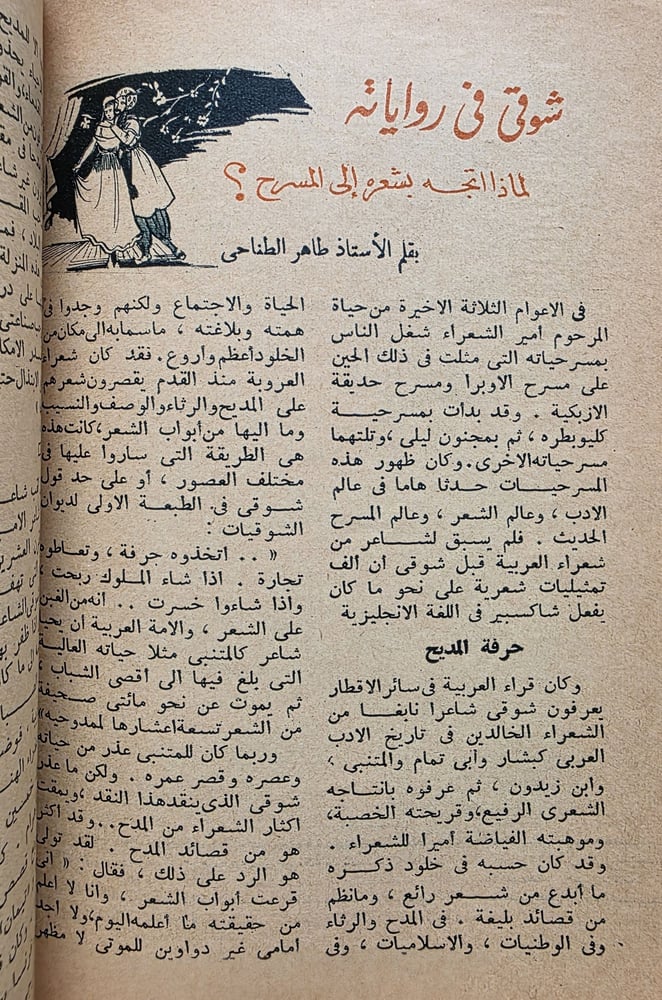 شوقي في رواياته
لماذا اتجه بشعره إلى المسرح ؟
بقلم الأستاذ طاهر الطناحى
فى الاعوام الثلاثة الاخيرة من حياة
المرحوم أمير الشعراء شغل الناس
بمسرحياته التى مثلت فى ذلك الحين
على مسرح الاوبرا ومسرح حديقة
الازبكية . وقد بدأت بمسرحيـــة
كليوبطره ، ثم بمجنون ليلى ،وتلتهما
مسرحياته الاخرى.وكان ظهور هذه
المسرحيـات حدثا هاما فى عالم
الادب ، وعالم الشعر ، وعالم المسرح
الحديث . فلم يسبق لشـاعر من
شعراء العربية قبل شوقى أن ألف
تمثيليات شعرية على نحو ما كان
يفعل شاكسبير فى اللغة الانجليزية
حرفة المديح
وكان قراء العربية فى سائر الاقطار
يعرفون شوقى شاعرا نابغـا من
الشعراء الخالدين فى تاريخ الادب
العربى كبشار وأبى تمام والمتنبى ،
وابن زيدون ، ثم عرفوه بانتـاجه
الشعرى الرفيع،وقريحته الخصبة،
وموهبته الفياضة أميرا للشعراء .
وقد كان حسبه فى خلود ذكــره
ما أبدع من شــعر رائع ، ومانظم
من قصائد بليغة . فى المدح والرثاء
وفى الوطنيات ، والاسلاميات ، وفى
الحياة والاجتماع ولكنهم وجدوا فى
همته وبلاغته ، ماسمابه الى مكان من
الخلود أعظم وأروع . فقد كان شعراء
العروبة منذ القدم يقصرون شعرهم
على المديح والرثاء والوصف والنسيب
وما اليها من أبواب الشعر، كانت هذه
هى الطريقة التى ساروا عليها فى
مختلف العصور ، أو على حد قول
شــوقى فى الطبعة الاولى لديوان
الشوقيات :
« .. اتخذوه حرفة ، وتعاطوه
تجارة . اذا شاء المـلوك ربحت ،
واذا شاءوا خسرت .. انه من الغبن
على الشعر ، والامة العربية أن يحيا
شاعر كالمتنبى مثلا حياته العالية
التى بلغ فيها الى أقصى الشباب ،
ثم يموت عن نحو مائتى صـحيفة
من الشعر تسعة اعشارها لممدوحيه»
وربما كان للمتنبى عذر من حياته
وعصره وقصر عمره . ولكن ما عذر
شوقى الذى ينقد هذا النقد ، ويمقت
اكثار الشعراء من المدح.. وقد اكثر
هو من قصائد المدح . لقد تولى
هو الرد على ذلك ، فقال : « انى
قرعت أبواب الشعر ، وأنا لا أعلم
من حقيقته ما أعلمه اليوم،ولا أجد
أمامى غير دواوين للموتى لا مظهر